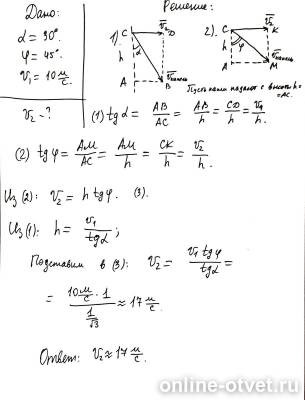 Дано:
α = 30°
φ = 45°
v₁ = 10 м/с
v₂ - ?
Решение:
1).
C
v₁
D
α
h
A
B
v капель
2).
C
v₂
K
φ
h
A
M
v капель
Пусть капли падают с высоты h =
= AC.
(1) tg α = AB/AC = AB/h = CD/h = v₁/h
(2) tg φ = AM/AC = AM/h = CK/h = v₂/h.
Из (2): v₂ = h tg φ. (3).
Из (1): h = v₁/tg α ;
Подставим в (3): v₂ = v₁ tg φ/tg α =
= 10 м/с · 1 / 1/√3 ≈ 17 м/с.
Ответ: v₂ ≈ 17 м/с.
online-otvet.ru